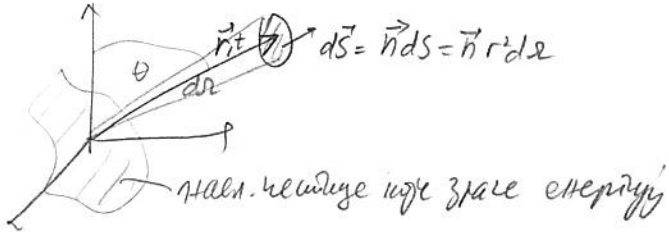 r⃗,t
dS⃗ = n⃗dS = n⃗ r²dΩ
θ
dΩ
наел. честице које зраче енергију